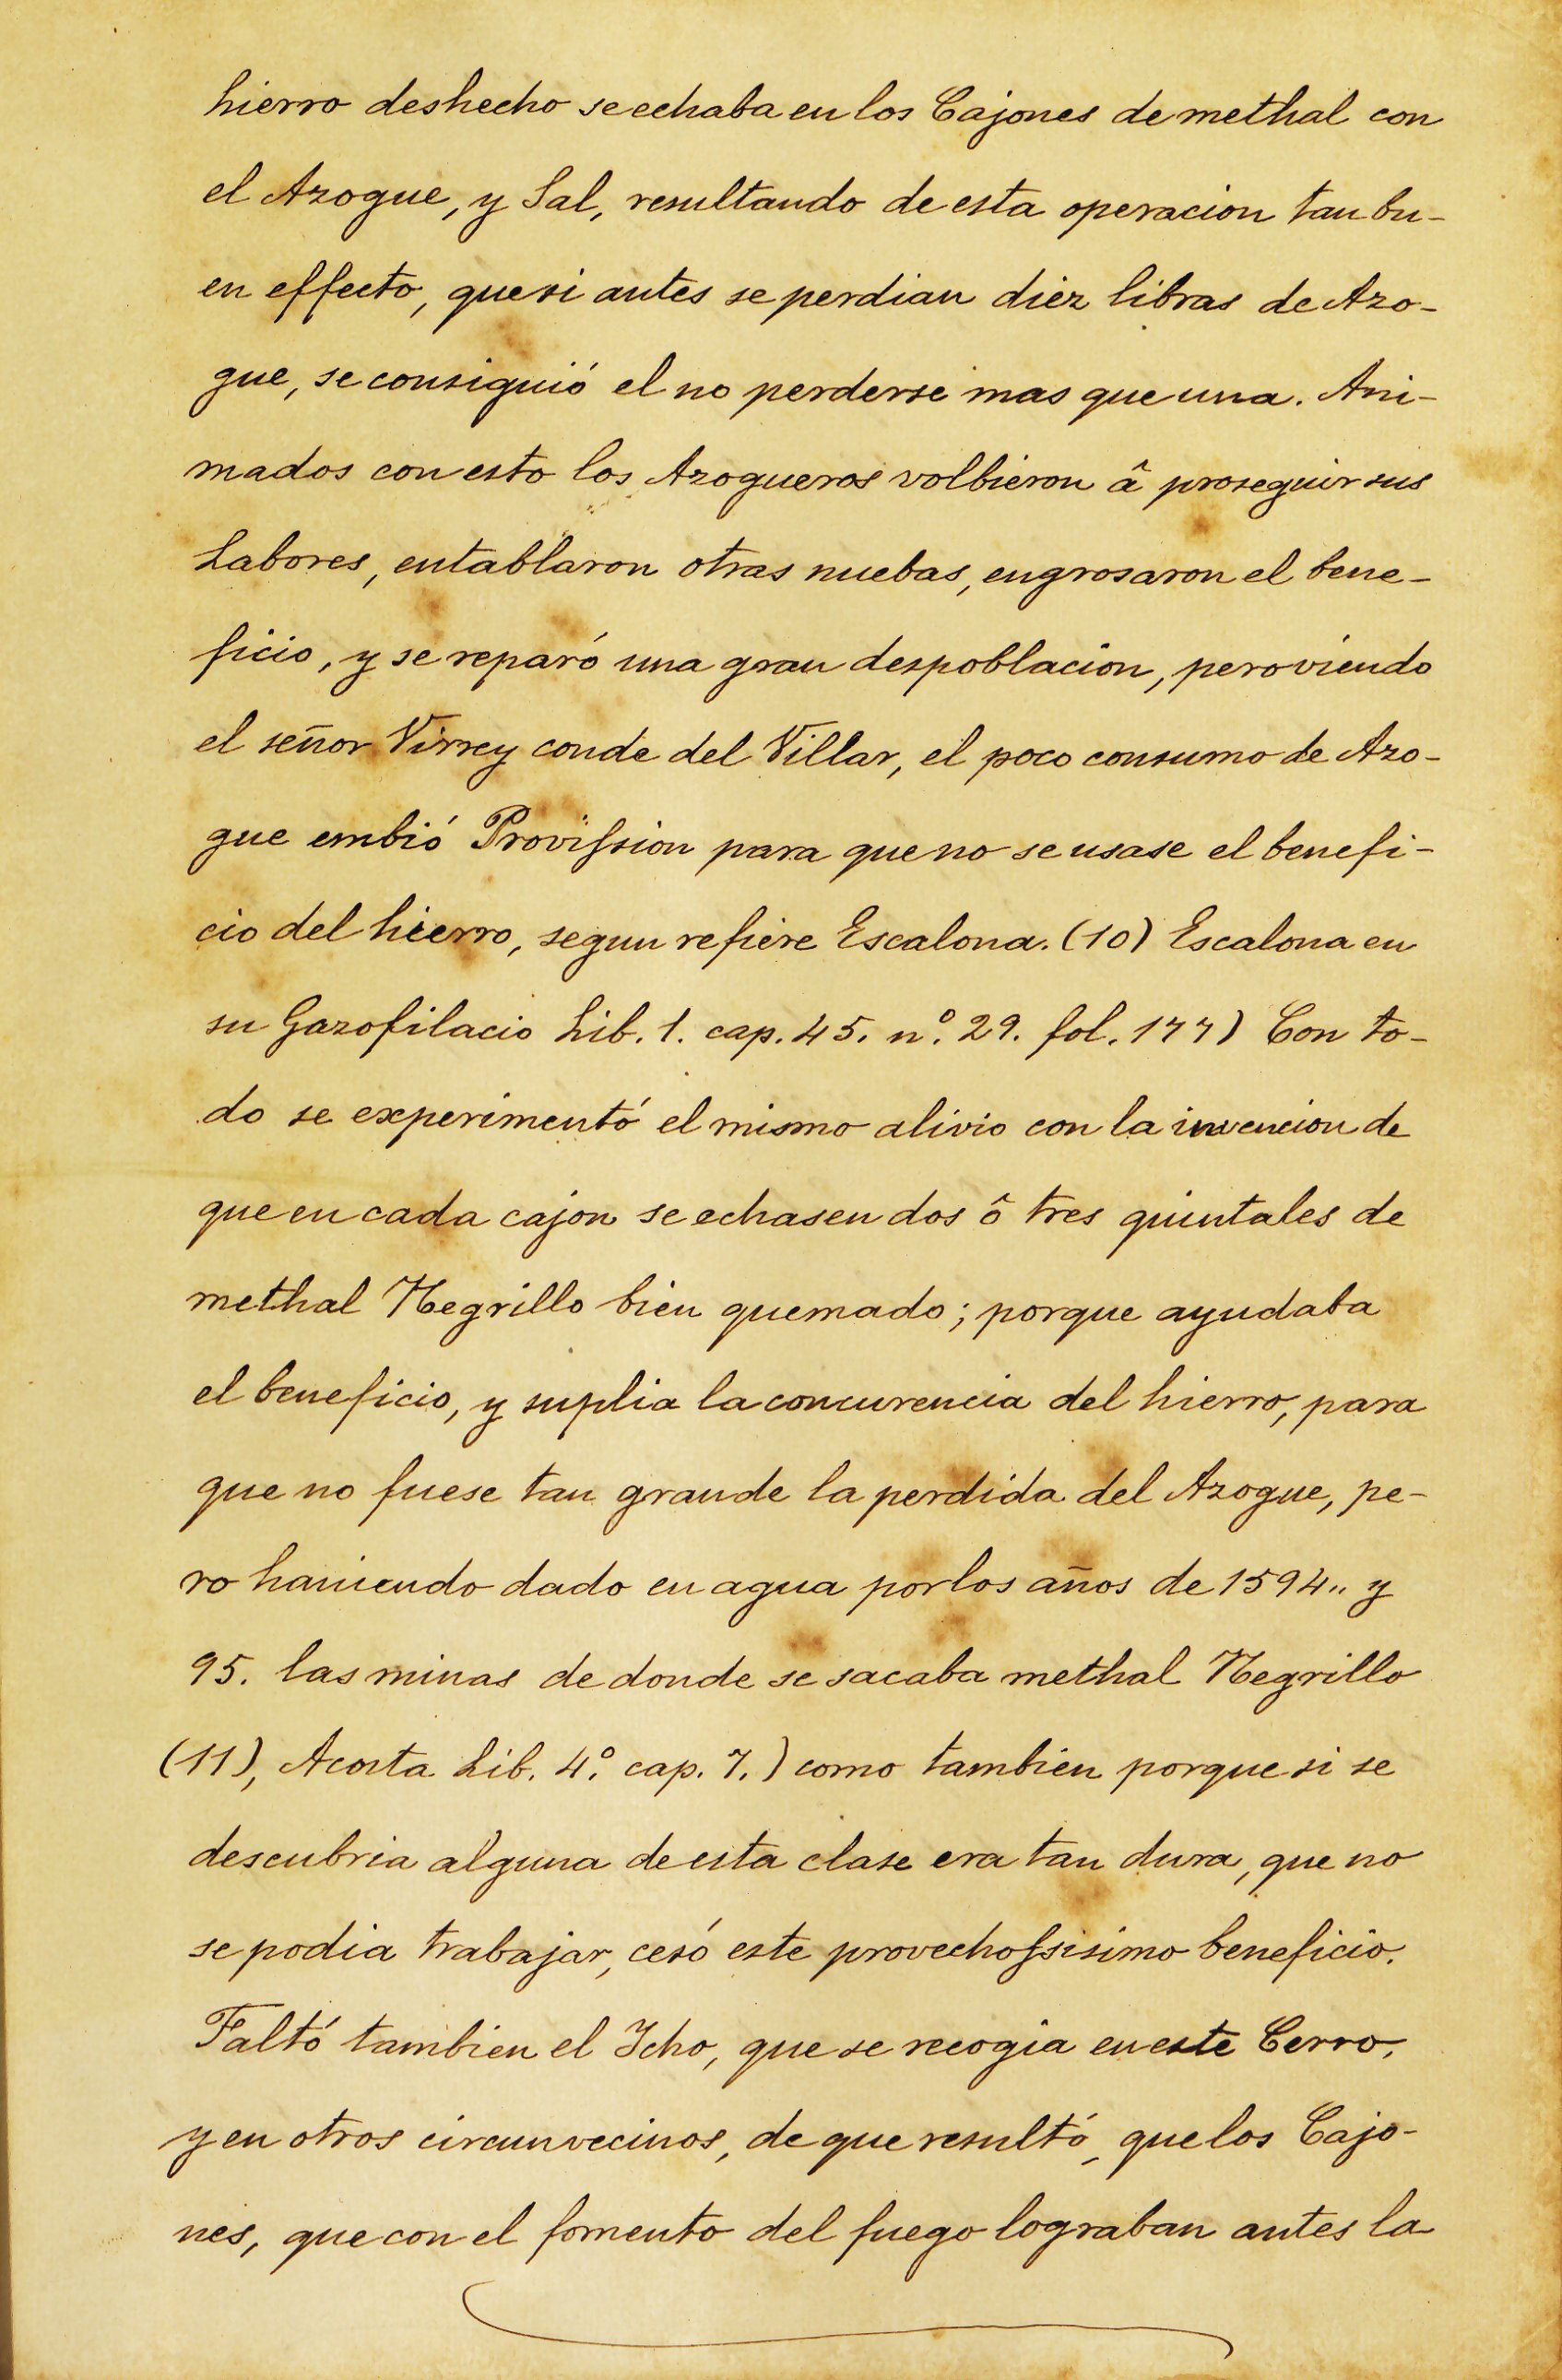 hierro deshecho se echaba en los Cajones de methal con
el Azogue, y Sal, resultando de esta operacion tan bu-
en effecto, que si antes se perdian diez libras de Azo-
gue, se consiguió el no perderse mas que una. Ani-
mados con esto los Azogueros volbieron â proseguir sus
Labores, entablaron otras nuebas, engrosaron el bene-
ficio, y se reparó una gran despoblacion, pero viendo
el señor Virrey conde del Villar, el poco consumo de Azo-
gue embió Provission para que no se usase el benefi-
cio del hierro, segun refiere Escalona. (10) Escalona en
su Gazofilacio Lib. 1. cap. 45. nº. 29. fol. 177) Con to-
do se experimentó el mismo alivio con la invencion de
que en cada cajon se echasen dos ô tres quintales de
methal Negrillo bien quemado; porque ayudaba
el beneficio, y suplia la concurencia del hierro, para
que no fuese tan grande la perdida del Azogue, pe-
ro haviendo dado en agua por los años de 1594,, y
95. las minas de donde se sacaba methal Negrillo
(11), Acosta Lib. 4º. cap. 7.) como tambien porque si se
descubria alguna de esta clase era tan dura, que no
se podia trabajar, cesó este provechossisimo beneficio.
Faltó tambien el Icho, que se recogia en este Cerro,
y en otros circunvecinos, de que resultó, que los Cajo-
nes, que con el fomento del fuego lograban antes la